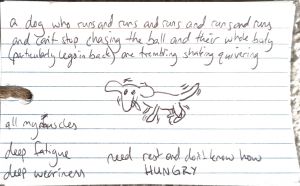 a dog who runs and runs and runs and runs and runs and runs
and can't stop chasing the ball and their whole body
(particularly legs in back) are trembling shaking quivering
all my muscles
deep fatigue
deep weariness
need rest and don't know how
HUNGRY